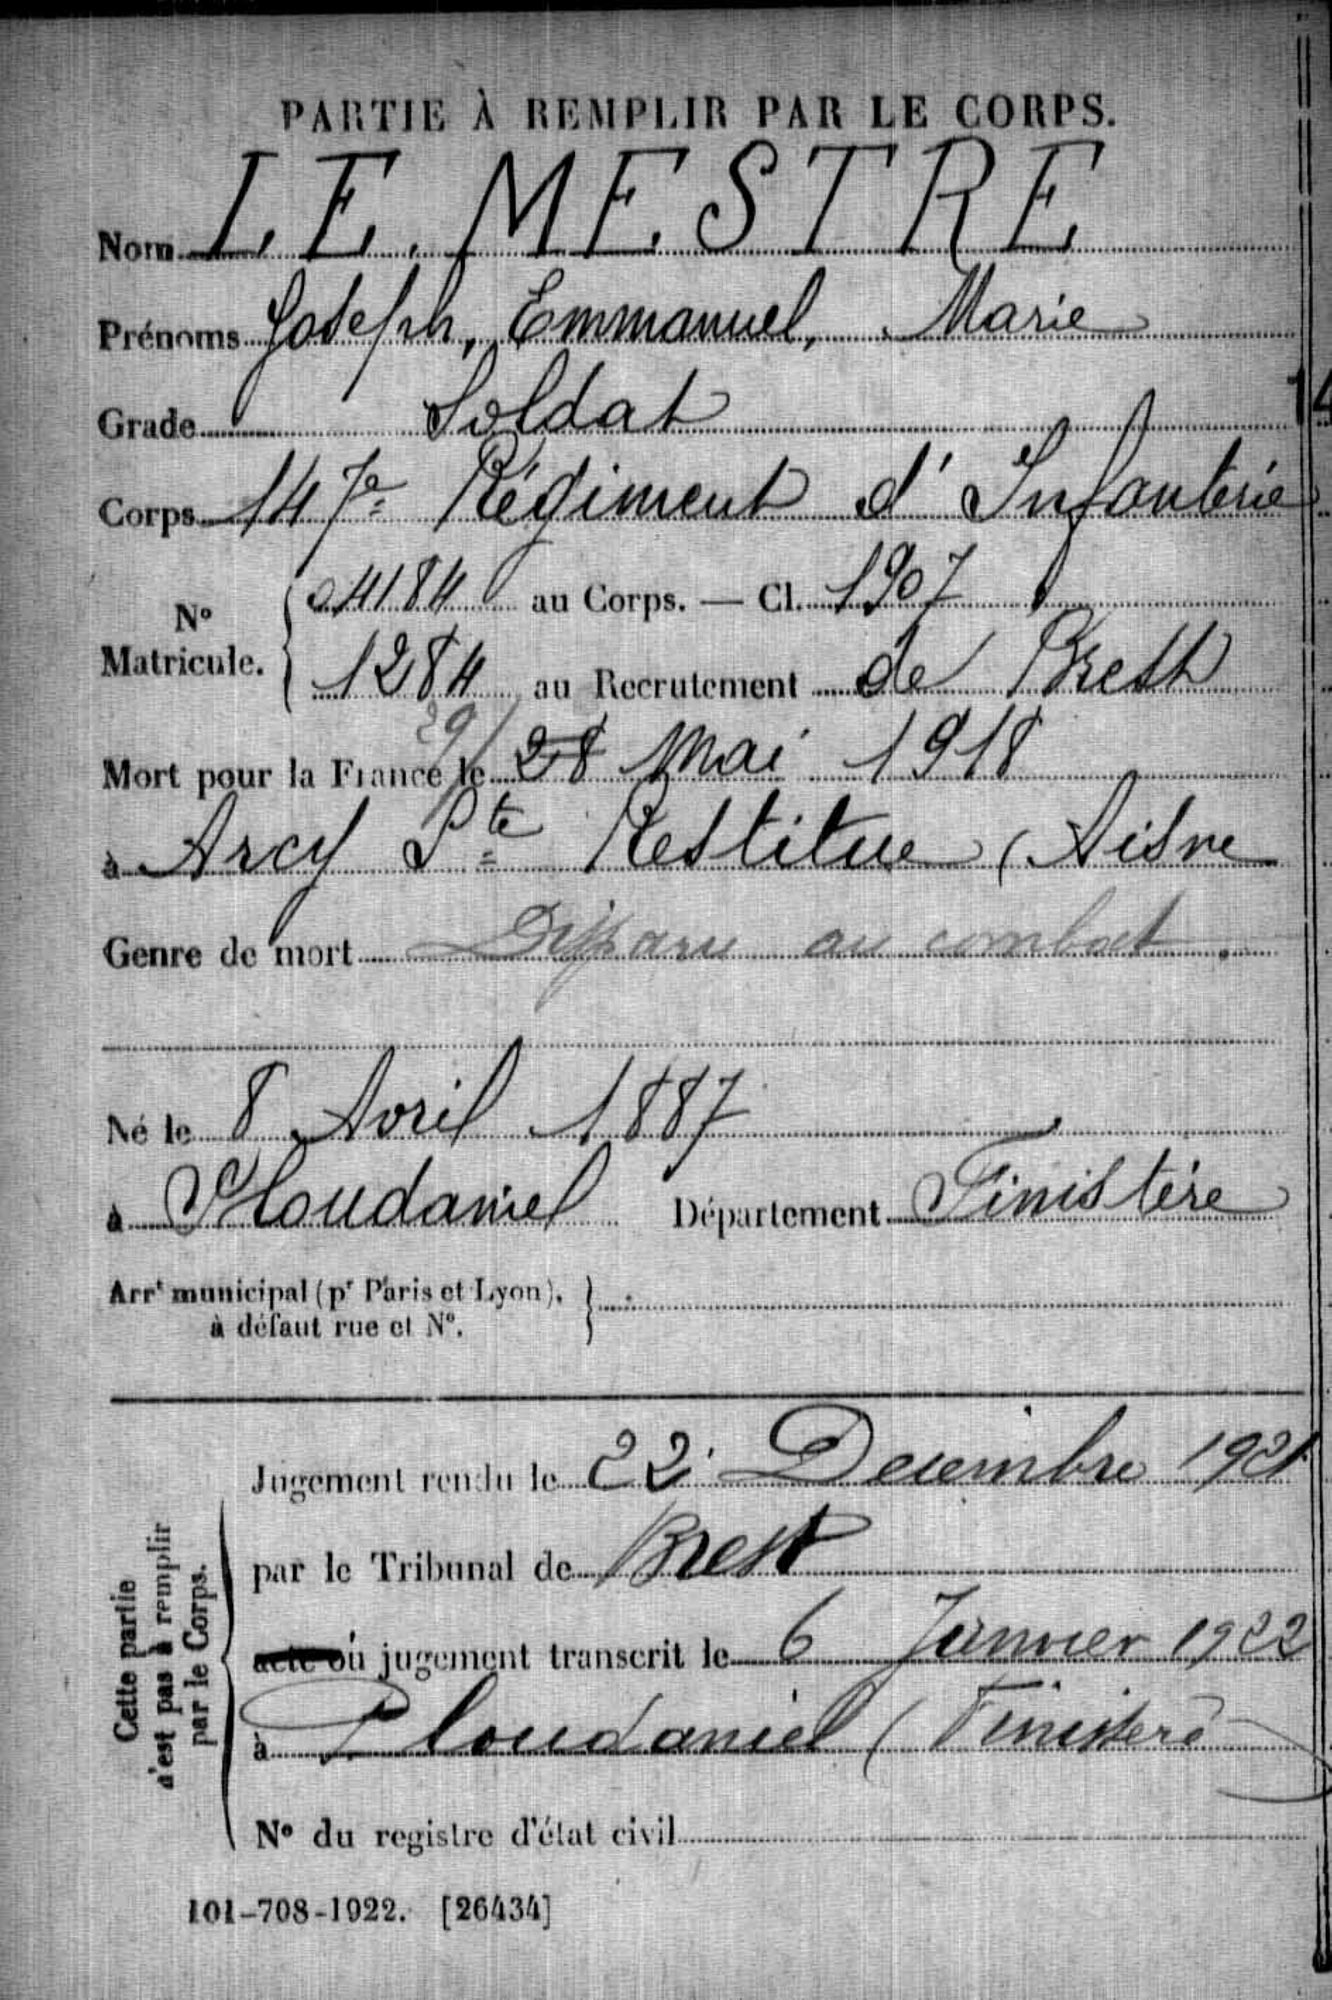 PARTIE À REMPLIR PAR LE CORPS.
Nom LE MESTRE
Prénoms Joseph, Emmanuel, Marie
Grade Soldat
14
Corps 147e Régiment d'Infanterie
N° Matricule. { 04184 au Corps. — Cl. 1907
1284 au Recrutement de Brest
29/
Mort pour la France le 28 Mai 1918
à Arcy Ste Restitue (Aisne
Genre de mort Disparu au combat.
Né le 8 Avril 1887
à Ploudaniel Département Finistère
Arrt municipal (pr Paris et Lyon), }
à défaut rue et N°.
Cette partie
n'est pas à remplir
par le Corps.
Jugement rendu le 22 Decembre 1921
par le Tribunal de Brest
acte ou jugement transcrit le 6 Janvier 1922
à Ploudaniel (Finistere
N° du registre d'état civil
101-708-1922. [26434]